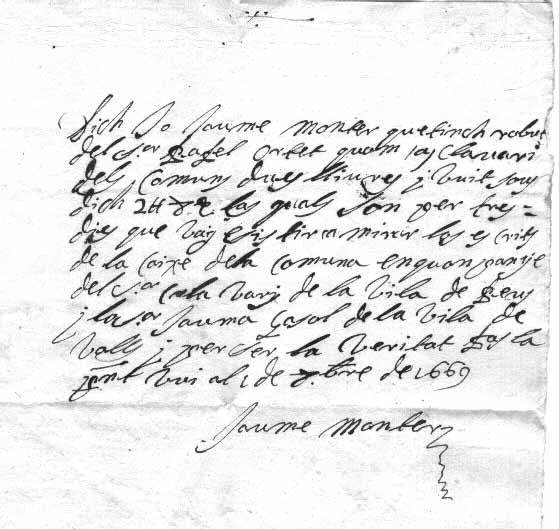 Dich Jo Jaume Monter que tinch rebut
del S.or Rafel Ortet quom as Clavari
dels Comuns dues lliures j vuit sous
dich 2 ll 8 s las quals son per tres
dies que vaj esistir a mirar les escrits
de la caixe de la Comuna en quonpanije
del S.or de la Vila de Reus
j la S.or Jauma Casol de la Vila de
Valls j per ser la Veritat fas la
pnt vui al 1 de bre de 1669
Jaume Monter